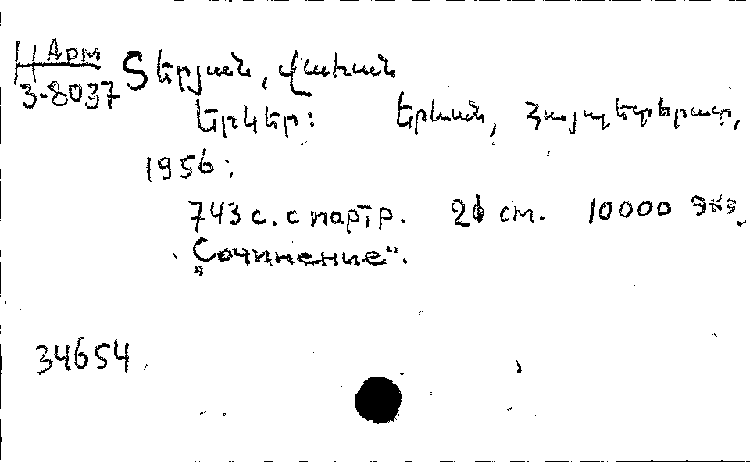 Н Арм
3-8037
Տերյան, Վահան
Երկեր: Երևան, Հայպետհրատ,
1956:
743 с. с портр. 21 см. 10000 экз.
„Сочинение“.
34654